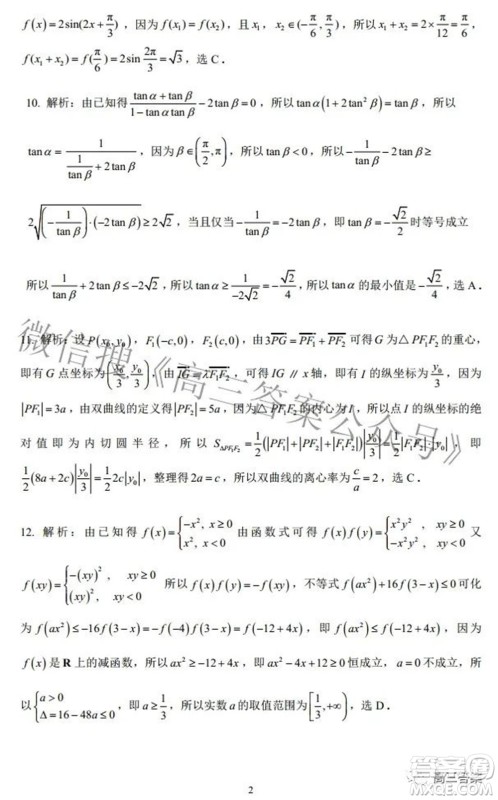 f(x)=2sin(2x+π/3)，因为 f(x₁)=f(x₂)，且 x₁，x₂∈(-π/6，π/3)，所以 x₁+x₂=2×π/12=π/6，所以
f(x₁+x₂)=f(π/6)=2sin 2π/3=√3，选 C．
10. 解析：由已知得 (tanα+tanβ)/(1-tanαtanβ)-2tanβ=0，所以 tanα(1+2tan²β)=tanβ，所以
tanα=1/(1/tanβ+2tanβ)，因为 β∈(π/2,π)，所以 tanβ<0，所以 -1/tanβ-2tanβ≥
2√((-1/tanβ)·(-2tanβ))≥2√2，当且仅当 -1/tanβ=-2tanβ，即 tanβ=-√2/2 时等号成立
所以 1/tanβ+2tanβ≤-2√2，所以 tanα≥1/(-2√2)=-√2/4，所以 tanα的最小值是 -√2/4，选 A．
11. 解析：设 P(x₀,y₀)，F₁(-c,0)，F₂(c,0)，由3PG=PF₁+PF₂ 可得 G 为△PF₁F₂ 的重心，
即有 G 点坐标为(x₀/3, y₀/3)，由 IG=λF₁F₂，可得 IG∥x轴，即有 I 的纵坐标为 y₀/3，因为
|PF₁|=3a，由双曲线的定义得|PF₂|=5a，因为△PF₁F₂ 的内心为I，所以点 I 的纵坐标的绝
对值即为内切圆半径，所以 S△PF₁F₂=1/2(|PF₁|+|PF₂|+|F₁F₂|)|y₀/3|=1/2|F₁F₂||y₀|，即
1/2(8a+2c)|y₀/3|=1/2 2c|y₀|，整理得2a=c，所以双曲线的离心率为 c/a=2，选 C．
12. 解析：由已知得 f(x)={-x², x≥0 x², x<0 由函数式可得 f(x)f(y)={x²y², xy≥0 -x²y², xy<0 又
f(xy)={-(xy)², xy≥0 (xy)², xy<0 所以 f(x)f(y)=-f(xy)，不等式 f(ax²)+16f(3-x)≤0 可化
为 f(ax²)≤-16f(3-x)=-f(-4)f(3-x)=f(-12+4x)，即 f(ax²)≤f(-12+4x)，因为
f(x)是 R 上的减函数，所以 ax²≥-12+4x，即 ax²-4x+12≥0 恒成立，a=0 不成立，所
以{a>0 Δ=16-48a≤0，即 a≥1/3，所以实数a 的取值范围为[1/3,+∞)，选 D．
微信搜《高三答案公众号》
2
高三答案